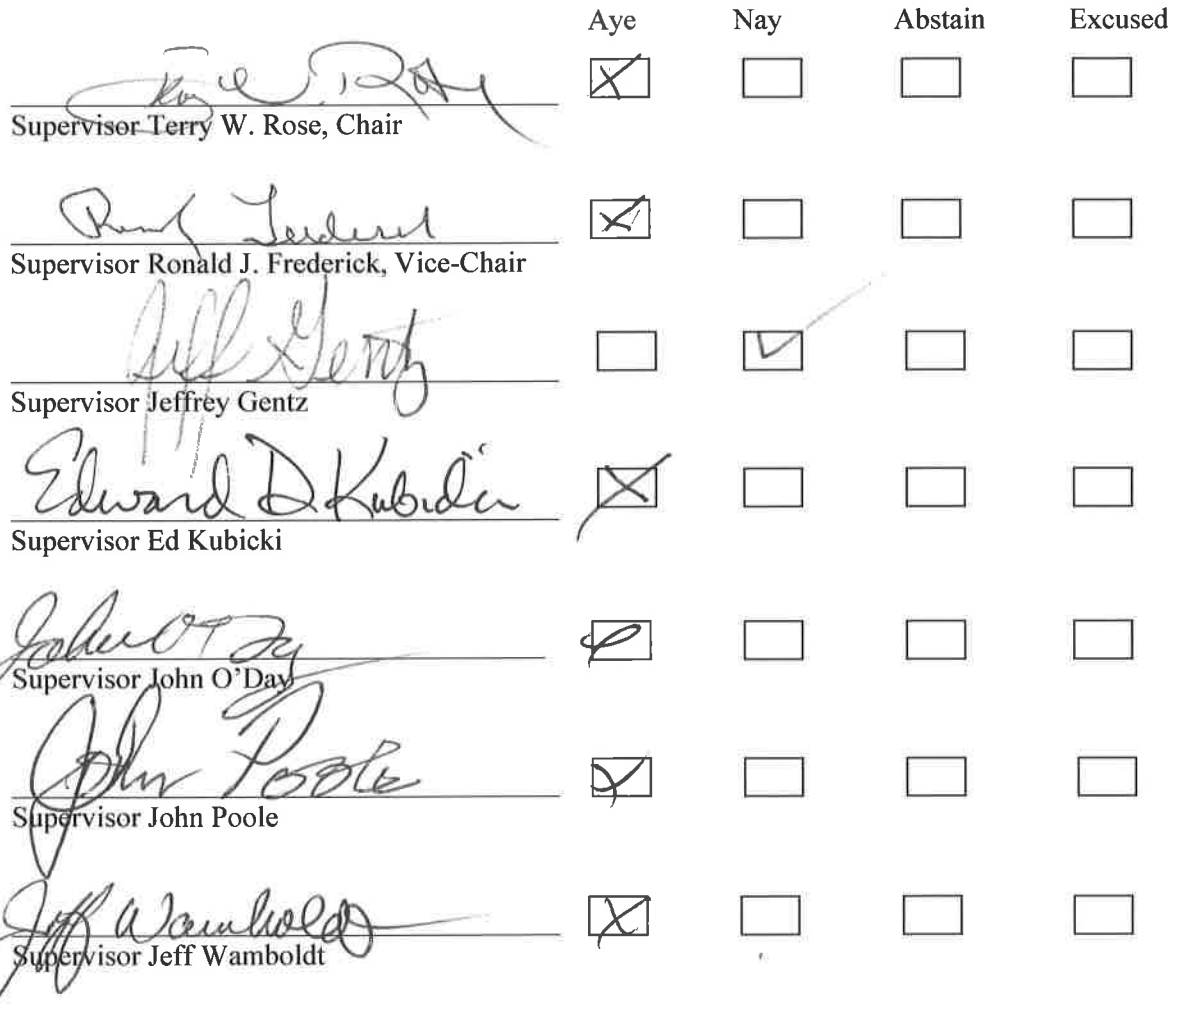 Aye Nay Abstain Excused
Terry W. Rose
Supervisor Terry W. Rose, Chair
Supervisor Ronald J. Frederick, Vice-Chair
Jeff Gentz
Supervisor Jeffrey Gentz
Edward D. Kubicki
Supervisor Ed Kubicki
John O'Day
Supervisor John O'Day
John Poole
Supervisor John Poole
Jeff Wamboldt
Supervisor Jeff Wamboldt